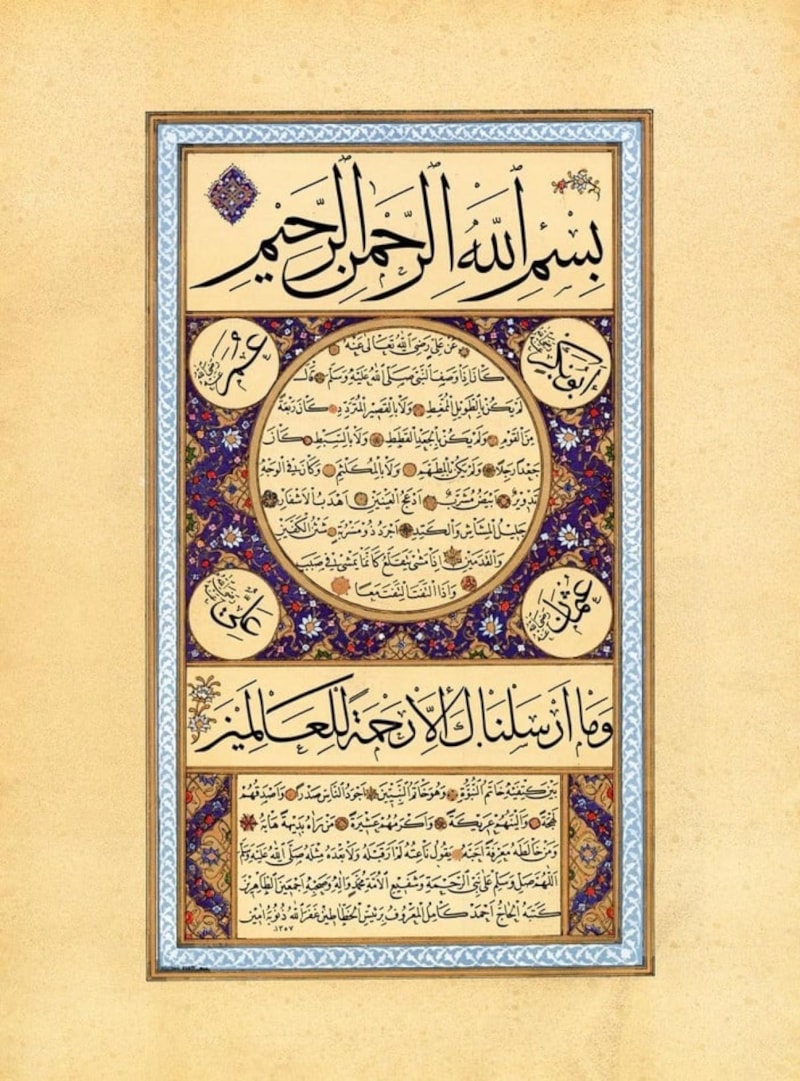 بِسْمِ اللهِ الرَّحْمنِ الرَّحِيمِ
أبو بكر رضي الله عنه
عمر رضي الله عنه
عَنْ عَلِيٍّ رَضِيَ اللهُ تَعَالى عَنْهُ
كَانَ اِذَا وَصَفَ النَّبِيَّ صَلَّى اللهُ عَلَيْهِ وَسَلَّمَ قَالَ
لَمْ يَكُنْ بِالطَّوِيلِ الْمُمَّغِطِ وَلَا بِالْقَصِيرِ الْمُتَرَدِّدِ كَانَ رَبْعَةً
مِنَ الْقَوْمِ وَلَمْ يَكُنْ بِالْجَعْدِ الْقَطَطِ وَلَا بِالسَّبِطِ كَانَ
جَعْدًا رَجِلًا وَلَمْ يَكُنْ بِالْمُطَهَّمِ وَلَا بِالْمُكَلْثَمِ وَكَانَ فِي الْوَجْهِ
تَدْوِيرٌ اَبْيَضُ مُشْرَبٌ اَدْعَجُ الْعَيْنَيْنِ اَهْدَبُ الْاَشْفَارِ
جَلِيلُ الْمُشَاشِ وَالْكَتِدِ اَجْرَدُ ذُو مَسْرُبَةٍ شَثْنُ الْكَفَّيْنِ
وَالْقَدَمَيْنِ اِذَا مَشٰى يَتَقَلَّعُ كَاَنَّمَا يَمْشِي فِي صَبَبٍ
وَاِذَا الْتَفَتَ الْتَفَتَ مَعًا
عثمان رضي الله عنه
علي رضي الله عنه
وَمَا اَرْسَلْنَاكَ اِلَّا رَحْمَةً لِلْعَالَمِينَ
بَيْنَ كَتِفَيْهِ خَاتَمُ النُّبُوَّةِ وَهُوَ خَاتَمُ النَّبِيِّينَ اَجْوَدُ النَّاسِ صَدْرًا وَاَصْدَقُهُمْ
لَهْجَةً وَاَلْيَنُهُمْ عَرِيكَةً وَاَكْرَمُهُمْ عَشِيرَةً مَنْ رَاٰهُ بَدِيهَةً هَابَهُ
وَمَنْ خَالَطَهُ مَعْرِفَةً اَحَبَّهُ يَقُولُ نَاعِتُهُ لَمْ اَرَ قَبْلَهُ وَلَا بَعْدَهُ مِثْلَهُ صَلَّى اللهُ عَلَيْهِ وَسَلَّمَ
اَللّٰهُمَّ صَلِّ وَسَلِّمْ عَلٰى نَبِيِّ الرَّحْمَةِ وَشَفِيعِ الْاُمَّةِ مُحَمَّدٍ وَاٰلِهِ وَصَحْبِهِ اَجْمَعِينَ الطَّاهِرِينَ
كَتَبَهُ الْحَاجُّ اَحْمَدُ كَامِلُ الْمَعْرُوفُ بِرَئِيسِ الْخَطَّاطِينَ غَفَرَ اللهُ ذُنُوبَهُ اٰمِينَ
١٣٥٧